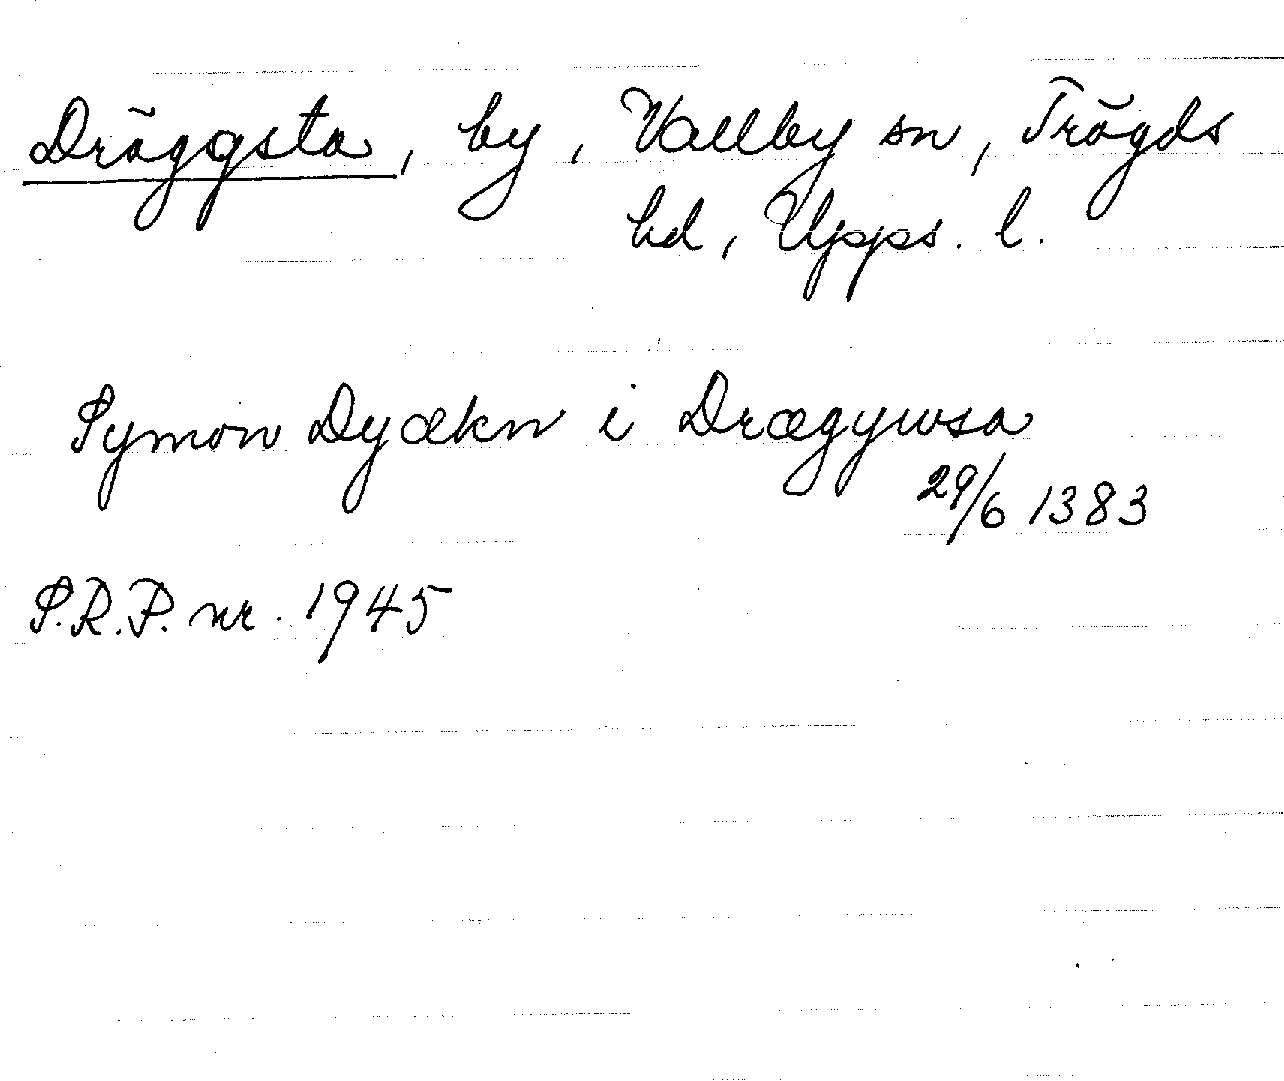 Dräggsta, by, Vallby sn, Trögds
hd, Upps. l.
Symon Dyækn i Drægywsa
29/6 1383
S.R.P. nr. 1945